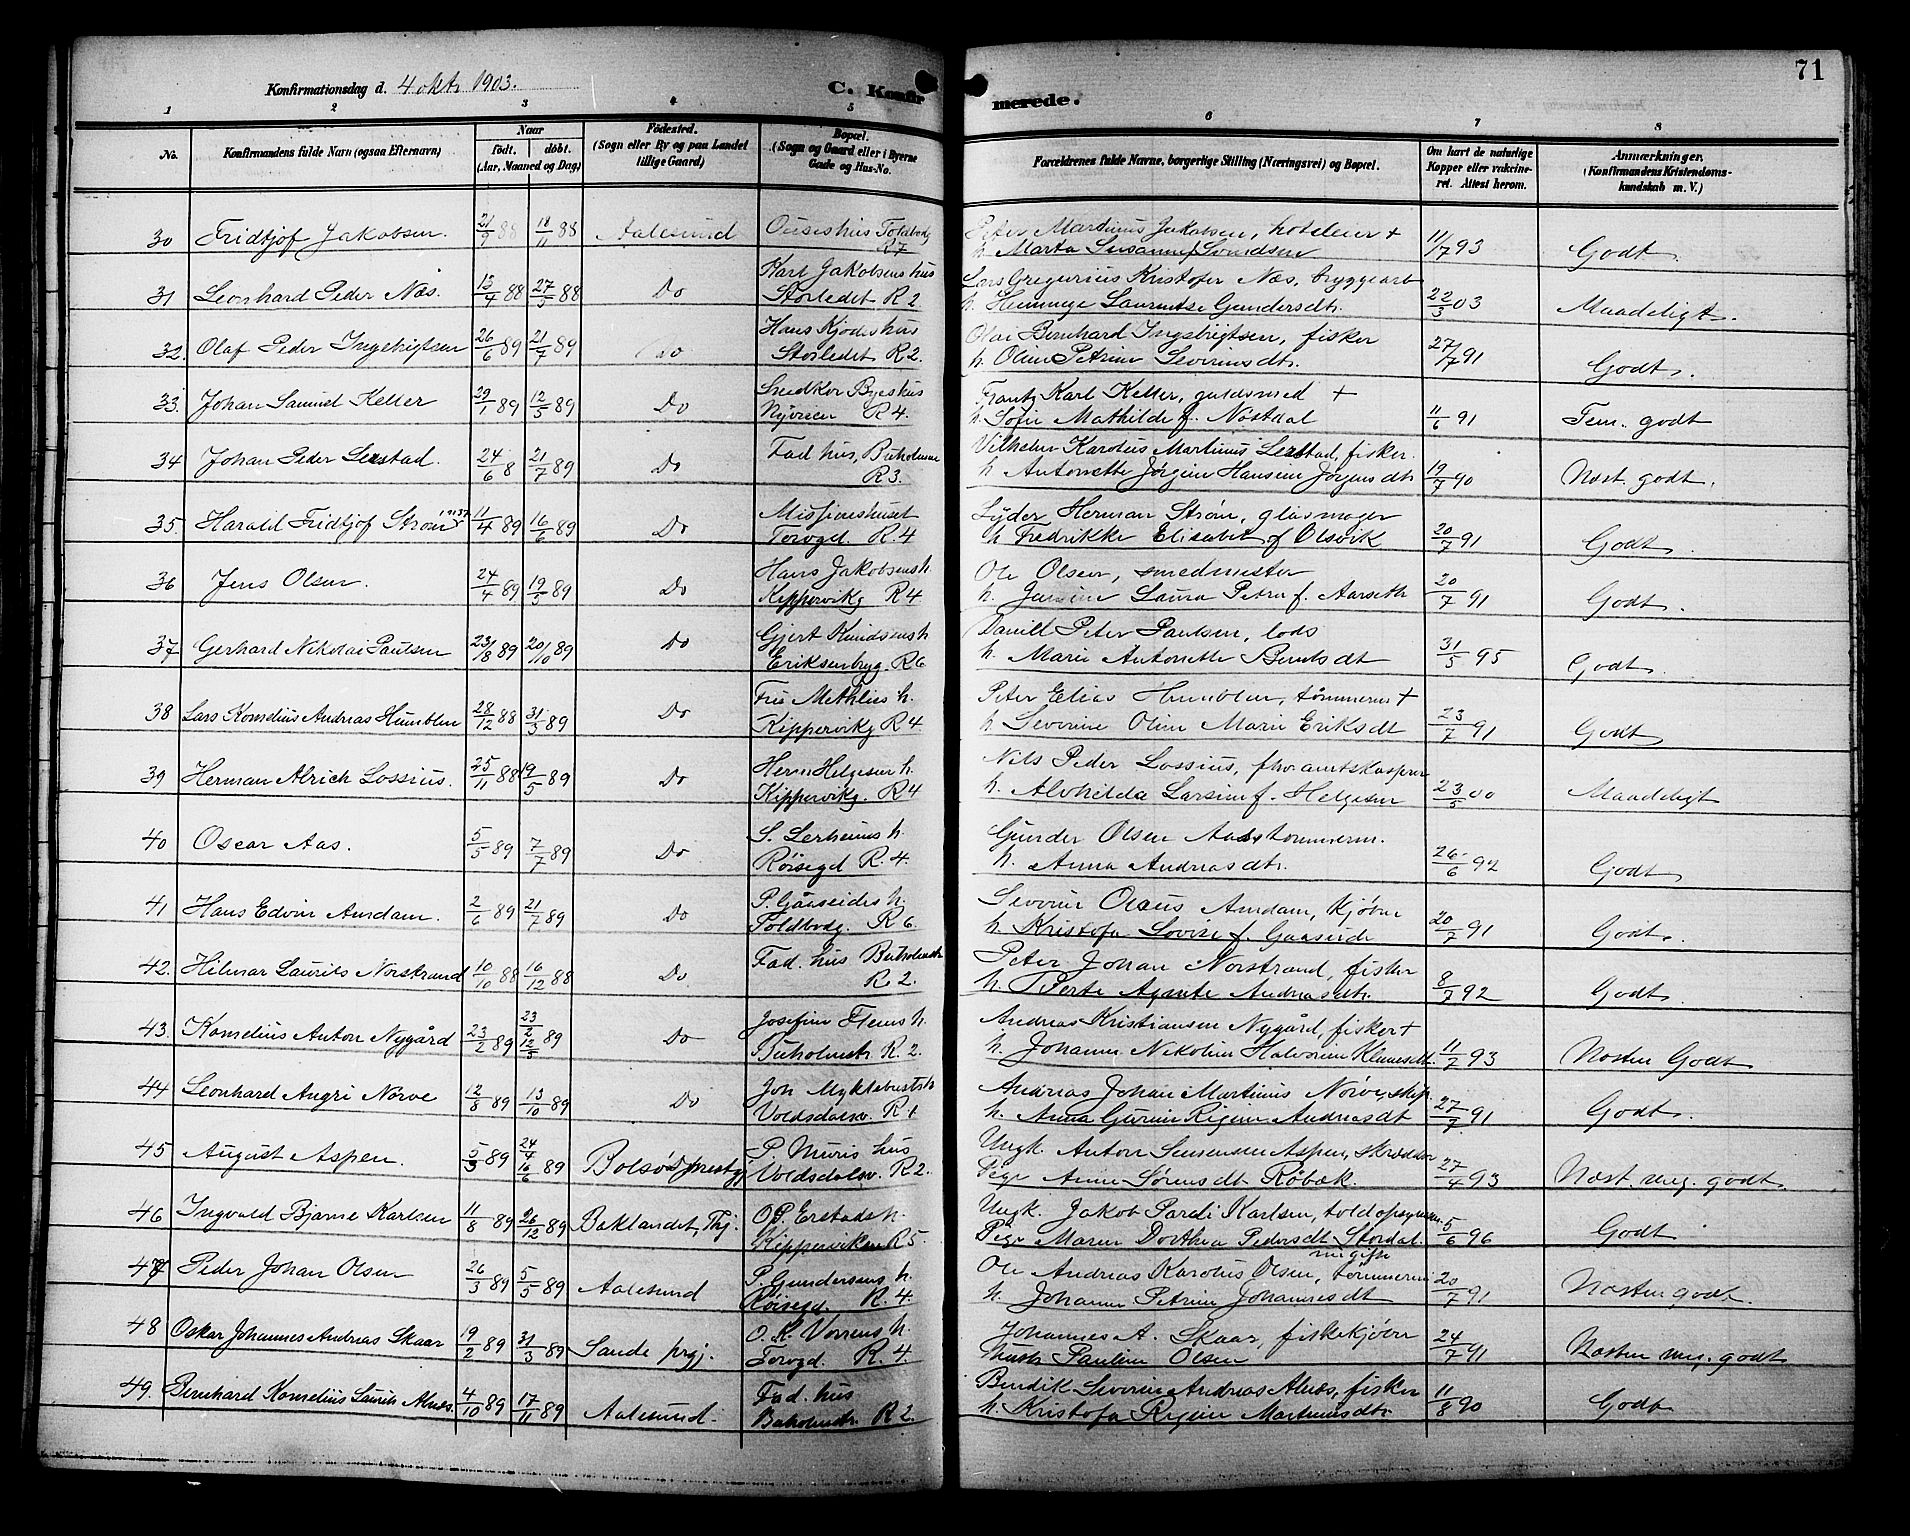 71
Konfirmationsdag d. 4 oktr 1903. C. Konfirmerede.
1 2 3 4 5 6 7 8
No. Konfirmandens fulde Navn (ogsaa Efternavn) Naar født. døbt. (Aar, Maaned og Dag) Fødested. (Sogn eller By og paa Landet tillige Gaard) Bopæl. (Sogn og Gaard eller i Byerne Gade og Hus-No. Forældrenes fulde Navne, borgerlige Stilling (Næringsvei) og Bopæl. Om havt de naturlige Kopper eller vakcineret. Attest herom. Anmærkninger. (Konfirmandens Kristendomskundskab m. V.)
30 Fridtjof Jakobsen. 21/9 88 18/11 88 Aalesund R7 Peter Martinus Jakobsen, hoteleier +
h. Marta Susanne f. 11/7 93 Godt.
31 Leonhard Peder Næs. 13/4 88 27/5 88 Do Karl Jakobsens hus Storledet R 2. Lars Gregorius Kristofer Næs, bryggearb
h. Laurentse Gundersdtr. 22/3 03 Maadeligt.
32. Olaf Peder Ingebrigtsen 26/6 89 21/7 89 Do Hans Kjødes hus Storledet R 2. Bernhard Ingebrigtsen, fisker
h. Oline Petrine Severinsdtr. 27/7 91 Godt.
33. Johan Samuel Keller 29/1 89 12/5 89 Do Snedker Byes hus R 4. Frantz Karl Keller, guldsmed +
h. Sofie Mathilde f. Nøstdal 11/6 91 Tem. godt
34 Johan Peder Lerstad. 24/6 8 21/7 89 Do Fad. hus, Buholmene R3. Vilhelm Karolus Martinus Lerstad, fisker.
h. Antonette Jørgine Hansine Jørgensdtr 19/7 90 Næst. godt.
35. Harald Fridtjof Strøm 11/4 89 16/6 89 Do Misjonshuset Torvgd. R 4 Lyder Herman Strøm, glasmager
h. Fredrikke Elisabet f Olsvik 20/7 91 Godt.
36 Jens Olsen. 24/4 89 19/5 89 Do Hans Jakobsens h. Kippervikg R 4. Ole Olsen, smedmester
h. Laura Petra f. Aarseth 20/7 91 Godt.
37 Gerhard Nikolai Paulsen 23/8 89 20/10 89 Do Gjert Knudsens h Eriksenbryg. R 6 Daniel Peter Paulsen, lods
h. Marie Antonette Berntsdt 31/5 95 Godt.
38 Lars Kornelius Andreas Humblen 28/12 88 31/3 89 Do h. Kippervikg R 4. Peter Elias Humblen, tømmerm +
h. Severine Oline Marie Eriksdt 23/7 91 Godt
39 Herman Alrich Lossius. 25/11 88 19/5 89 Do Herm Helgesen h. Kippervikg. R 4 Nils Peder Lossius, fhv. amtskasserer
h. Alvhilda Larsine f. Helgesen 23/5 00 Maadeligt
40 Oscar Aas. 5/5 89 7/7 89 Do S. Lerheims h. Røisegd R. 4. Gunder Olsen Aas, tømmerm.
h. Anna Andreasdtr. 26/6 92 Godt
41 Hans Edvin Amdam. 2/6 89 21/7 89 Do P. Gaaseides h. Toldbodg. R 6. Severin Olaus Amdam, kjøbm
h. Kristofa Lovise f. Gaaseide 20/7 91 Godt.
42. Hilmar Laurits Norstrand 10/10 88 16/12 88 Do. Fad. hus Buholmstr R 2. Peter Johan Norstrand, fisker
h. Berte Agnete Andreasdtr. 8/7 92 Godt.
43. Kornelius Anton Nygård 23/2 89 23/2 12/5 89 Do Josefine Flems h. Buholmstr. R. 2. Andreas Kristiansen Nygård, fisker +
h. Johanne Nikoline Halvorine 11/7 93 Næsten Godt
44 Leonhard Angri Nørve 12/8 89 13/10 89 Do Joh Myklebusts h Voldsdalsv. R 1 Andreas Johan Martinus Nørve,
h. Anna Gurine Regine Andreasdt 27/7 91 Godt.
45 August Aspen. 5/3 89 24/4 16/6 89 Bolsø prestgj P. Muris hus Voldsdalsv. R 2. Ungk. Anton Aspen, skrædder
Pige Anne Sørensdt Røbæk. 27/4 93 Næst. mg. godt.
46 Ingvald Bjarne Karlsen 11/8 89 26/12 89 Baklandet, Thj. O P. Erstads h. Kipperviken R 5. Ungk. Jakob Karlsen, toldopsynsm.
Pige Maren Dorthea Pedersdt Stordal. 5/6 96 Godt
47 Peder Johan Olsen 26/3 89 5/5 89 Aalesund P. Gundersens h. Røisegd. R. 4. Ole Andreas Karolus Olsen, tømmerm
h. Johanne Petrine Johannesdt 20/7 91 Næsten godt.
48 Oskar Johannes Andreas Skaar 19/2 89 31/3 89 Sande prgj. O. K. Vorrens h. Torvgd. R. 4. Johannes A. Skaar, fiskekjøber
Hustr Pauline Olsen 24/7 91 Næsten mg. godt
49. Bernhard Kornelius Laurits Alnæs. 4/10 89 17/11 89 Aalesund. Fad. hus Buholmstr. R 2. Bendik Severin Andreas Alnæs, fisker
h. Kristofa Regine Martinusdtr. 11/8 90 Godt